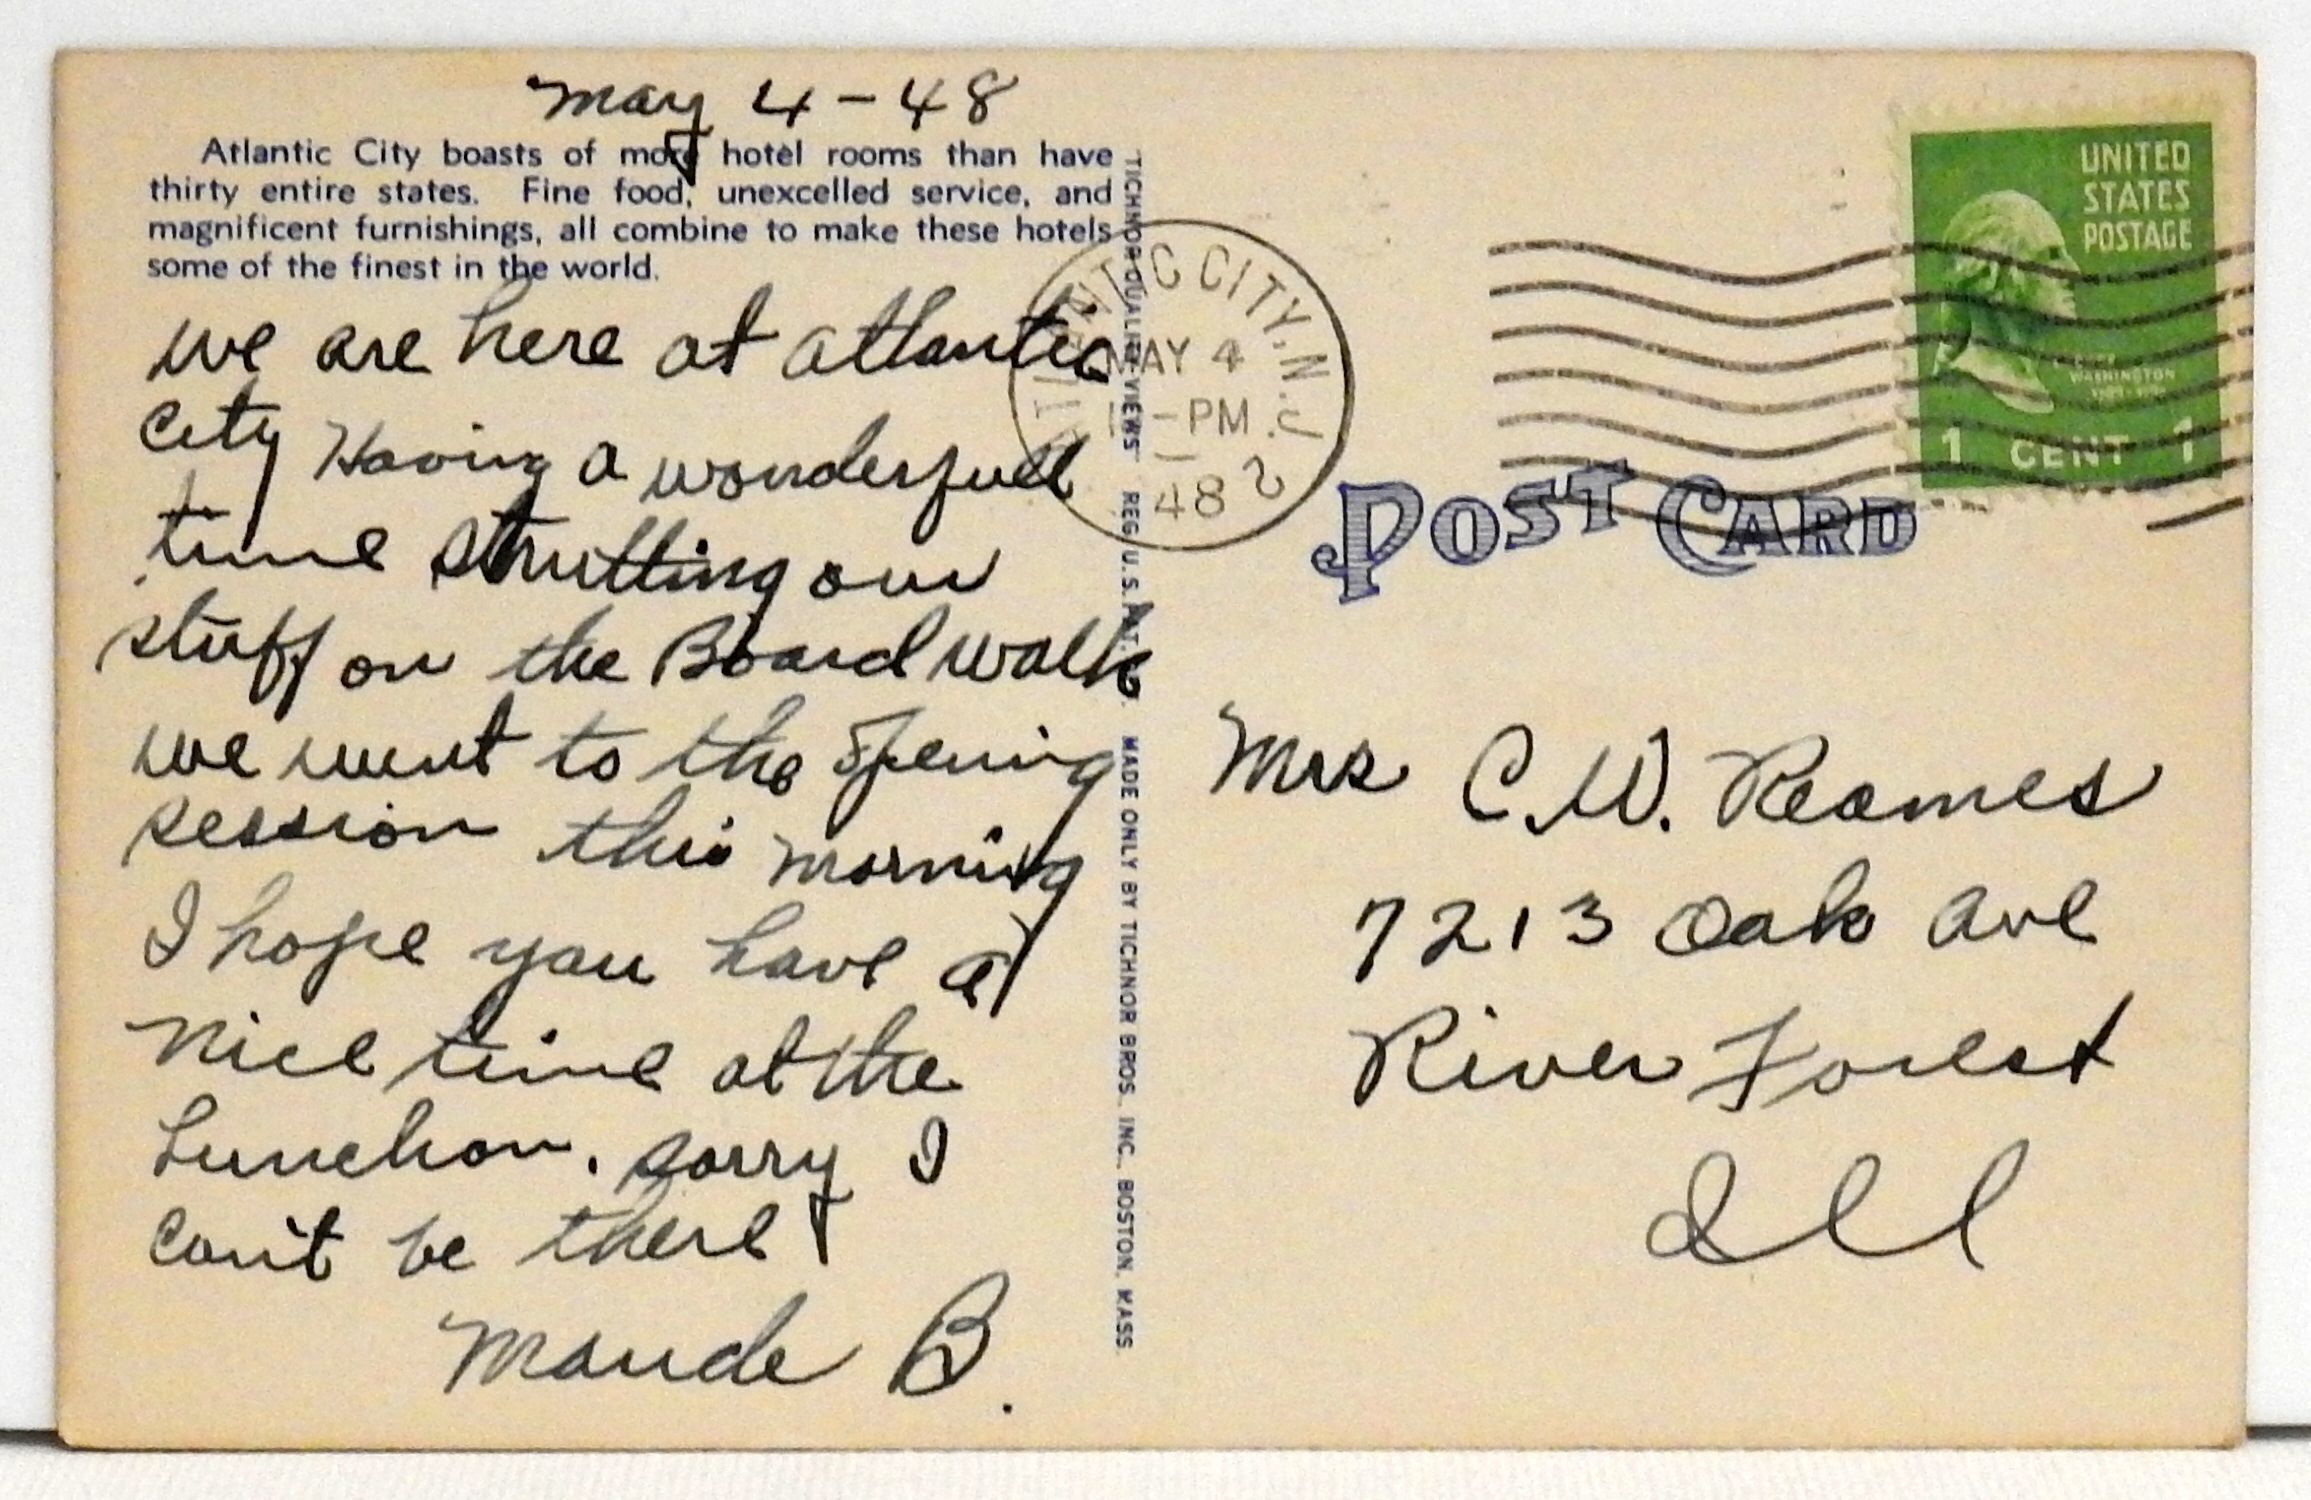 May 4-48
Atlantic City boasts of more hotel rooms than have
thirty entire states. Fine food, unexcelled service, and
magnificent furnishings, all combine to make these hotels
some of the finest in the world.
we are here at atlantic
city Having a wonderfull
time strutting our
stuff on the Board walk
we went to the opening
session this morning
I hope you have a
nice time at the
Lunchon. sorry I
can't be there
Maude B.
TICHNOR QUALITY VIEWS REG. U.S. PAT. OFF. MADE ONLY BY TICHNOR BROS. INC., BOSTON, MASS.
ATLANTIC CITY, N.J.
MAY 4
-PM
48
2
UNITED
STATES
POSTAGE
WASHINGTON
1 CENT 1
POST CARD
Mrs C.W. Reames
7213 Oak ave
River Forest
Ill